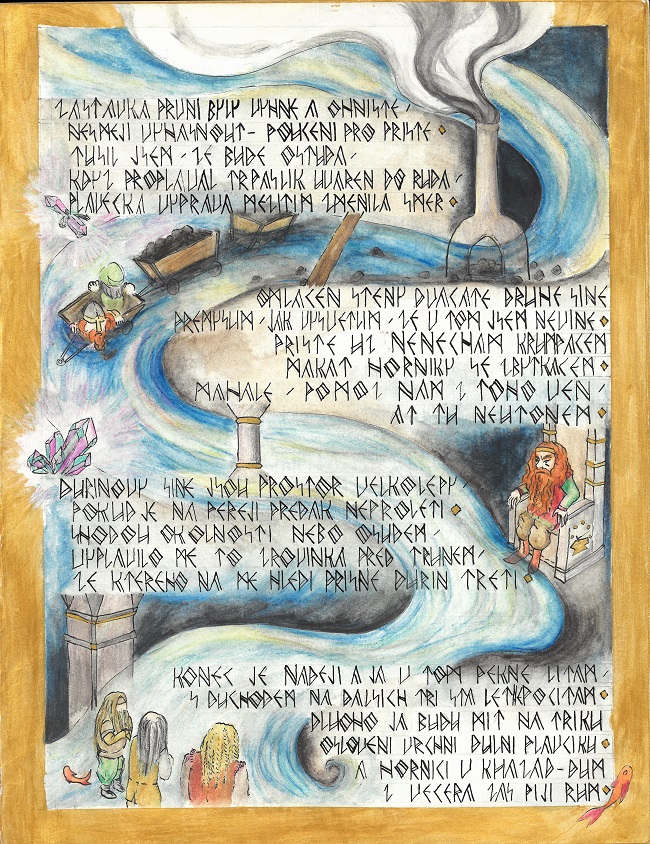 ZASTAVKA PRVNI BYLY VYHNE A OHNISTE,
NESMEJI VYHASNOUT - POUCENI PRO PRISTE
TUSIL JSEM, ZE BUDE OSTUDA,
KDYZ PROPLAVAL TRPASLIK UVAREN DO RUDA,
PLAVECKA VYPRAVA MELITIM ZMENILA SMER
OMLACEN STENY DVACATE DRUHE SINE
PREMYSLIM, JAK VYSVETLIM, ZE V TOM JSEM NEVINE
PRISTE UZ NENECHAM KRUMPACEM
MAKAT HORNIKU SE ZBYTKACEM
MAHALE, POMOZ NAM Z TOHO VEN,
AT TU NEUTONEM
DURINOVY SINE JSOU PROSTOR VELKOLEPY,
POKUD JE NA PEREJI PREDAK NEPROLETI
SHODOU OKOLNOSTI NEBO OSUDEM,
VYPLAVILO ME TO ZROVINKA PRED TRUNEM,
ZE KTEREHO NA ME HLEDI PRISNE DURIN TRETI
KONEC JE NADEJI A JA V TOM PEKNE LITAM,
S DUCHODEM NA DALSICH TRI STA LET NEPOCITAM
DLUHO JA BUDU MIT NA TRIKU
OSLOVENI VRCHNI DULNI PLAVCIKU
A HORNICI V KHAZAD-DUM
Z VECERA ZAS PIJI RUM